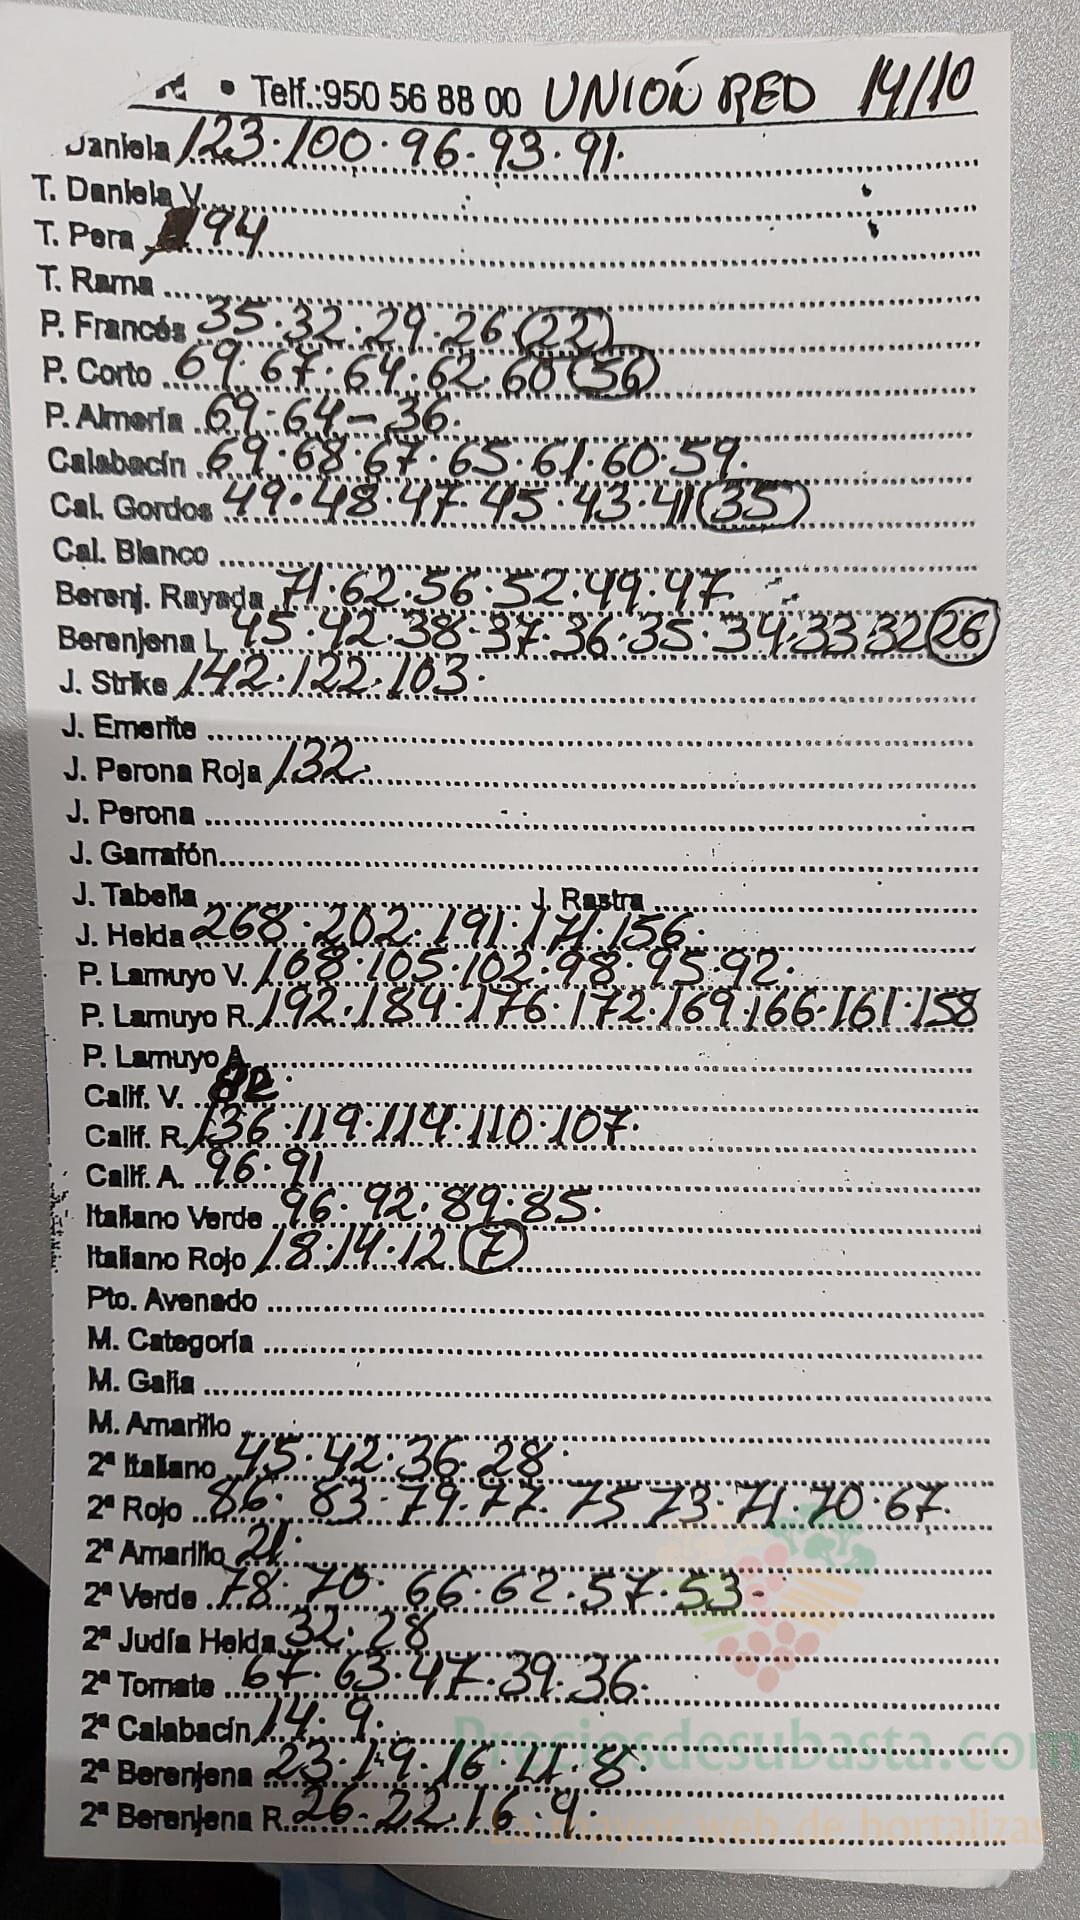 • Telf.:950 56 88 00 UNIÓN RED 14/10
Daniela 123·100·96·93·91·
T. Daniela V.
T. Pera 94
T. Rama
P. Francés 35·32·29·26 (22)
P. Corto 69·67·64·62·60 (56)
P. Almería 69·64-36·
Calabacín 69·68·67·65·61·60·59·
Cal. Gordos 49·48·47·45·43·41 (35)
Cal. Blanco
Berenj. Rayada 71·62·56·52·49·47·
Berenjena L. 45·42·38·37·36·35·34·33·32 (26)
J. Strike 142·122·103·
J. Emerite
J. Perona Roja 132·
J. Perona
J. Garrafón
J. Tabella J. Rastra
J. Helda 268·202·191·171·156·
P. Lamuyo V. 108·105·102·98·95·92·
P. Lamuyo R. 192·184·176·172·169·166·161·158
P. Lamuyo A.
Calif. V. 82·
Calif. R. 136·119·114·110·107·
Calif. A. 96·91
Italiano Verde 96·92·89·85·
Italiano Rojo 18·14·12 (7)
Pto. Avenado
M. Categoría
M. Galia
M. Amarillo
2ª Italiano 45·42·36·28·
2ª Rojo 86·83·79·77·75 73·71·70·67·
2ª Amarillo 21·
2ª Verde 78·70·66·62·57·53-
2ª Judía Helda 32·28
2ª Tomate 67·63·47·39·36·
2ª Calabacín 14·9·
2ª Berenjena 23·19·16·11·8·
2ª Berenjena R. 26·22·16·9·
Preciosdesubasta.com
La mayor web de hortalizas